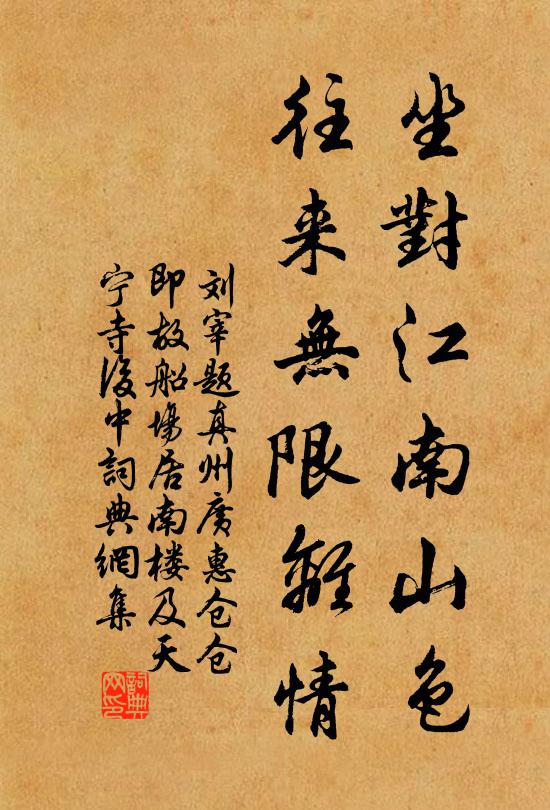 坐對江南山色
往来無限離情
刘宰题真州廣惠仓仓
即故船場居南楼及天
宁寺後中詞典網集
詞典
网印